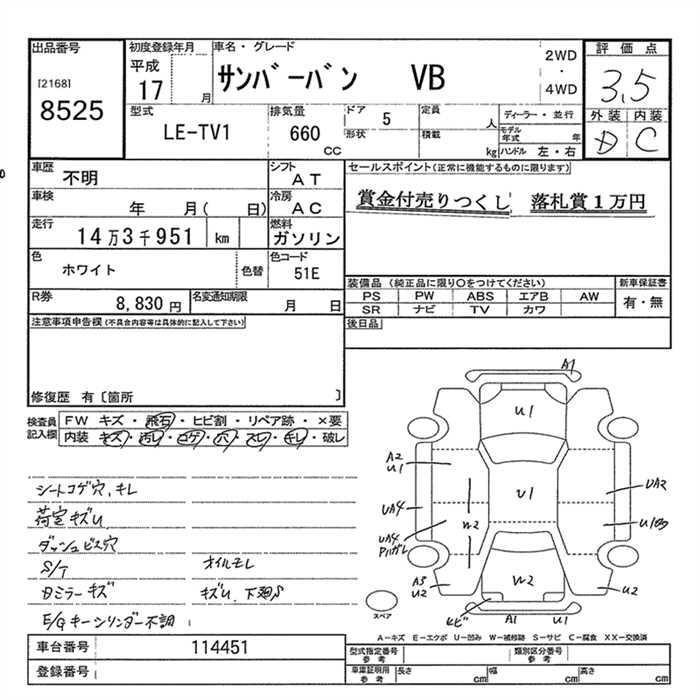 出品番号
[2168]
8525
初度登録年月
平成
17 月
車名・グレード
サンバーバン VB
2WD
・
4WD
評価点
3.5
外装 内装
D C
型式
LE-TV1
排気量
660
CC
ドア 5
形状
定員 人
積載 kg
ディーラー・並行
モデル年式 年
ハンドル 左・右
車歴
不明
シフト
AT
車検
年 月( 日)
冷房
AC
走行
14万3千951 km
燃料
ガソリン
色
ホワイト
色替
色コード
51E
R券
8,830 円
名変通知期限
月 日
注意事項申告欄(不具合内容等は具体的に記入して下さい)
修復歴 有〔箇所 〕
セールスポイント(正常に機能するものに限ります)
賞金付売りつくし 落札賞1万円
装備品(純正品に限り○をつけてください)
PS PW ABS エアB AW
SR ナビ TV カワ
新車保証書
有・無
後日品
検査員記入欄
FW キズ・飛石・ヒビ割・リペア跡・×要
内装 キズ・汚レ・コゲ・穴・スレ・キレ・破レ
シートコゲ穴、キレ
荷室キズU
ダッシュビス穴
S/T
オイルモレ
Bミラーキズ
キズU、下廻S
E/Gキーシリンダー不調
A1
U1
A2
U1
U1
UA2
UA4
W2
U1B3
UA4
A3
U2
W2
U2
ヒビ
A1
U1
スペア
A-キズ E-エクボ U-凹み W-補修跡 S-サビ C-腐食 XX-交換済
車台番号
114451
登録番号
型式指定番号
参考
類別区分番号
参考
車庫証明用
参考
長さ cm
幅 cm
高さ cm